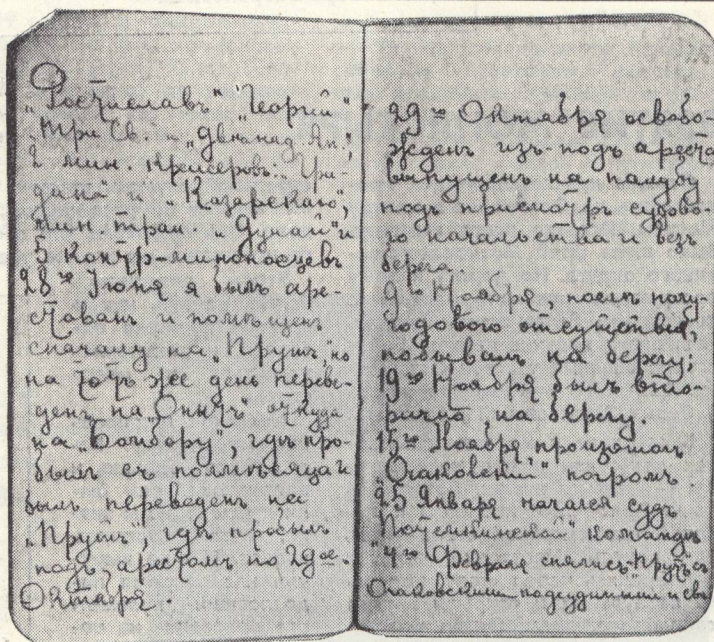 „Ростиславъ" „Георгий"
„Три Св. и „Двѣнад. Ап.",
2 мин. крейсеровъ: „Гри-
дина" и „Казарскаго",
мин. тран. „Дунай" и
5 контр-миноносцевъ
28го Іюня я былъ аре-
стованъ и помѣщенъ
сначалу на „Прутъ", но
на тотъ же день переве-
денъ на откуда
на „Бомбору", гдѣ про-
былъ съ полмѣсяца и
былъ переведенъ на
„Прутъ", гдѣ пробылъ
подъ арестомъ по 29ое
Октября.
29го Октября освобо-
жденъ изъ-подъ ареста
выпущенъ на палубу
подъ присмотръ судово-
го начальства и безъ
берега.
9го Ноября, послѣ полу-
годового отсутствія,
побывалъ на берегу;
19го Ноября былъ вто-
рично на берегу.
15го Ноября произошолъ
„Очаковскій" погромъ.
25 Января начался судъ
„Потемкинской" команды
4го Февраля снялись „Прутъ" съ
Очаковскими подсудимыми и